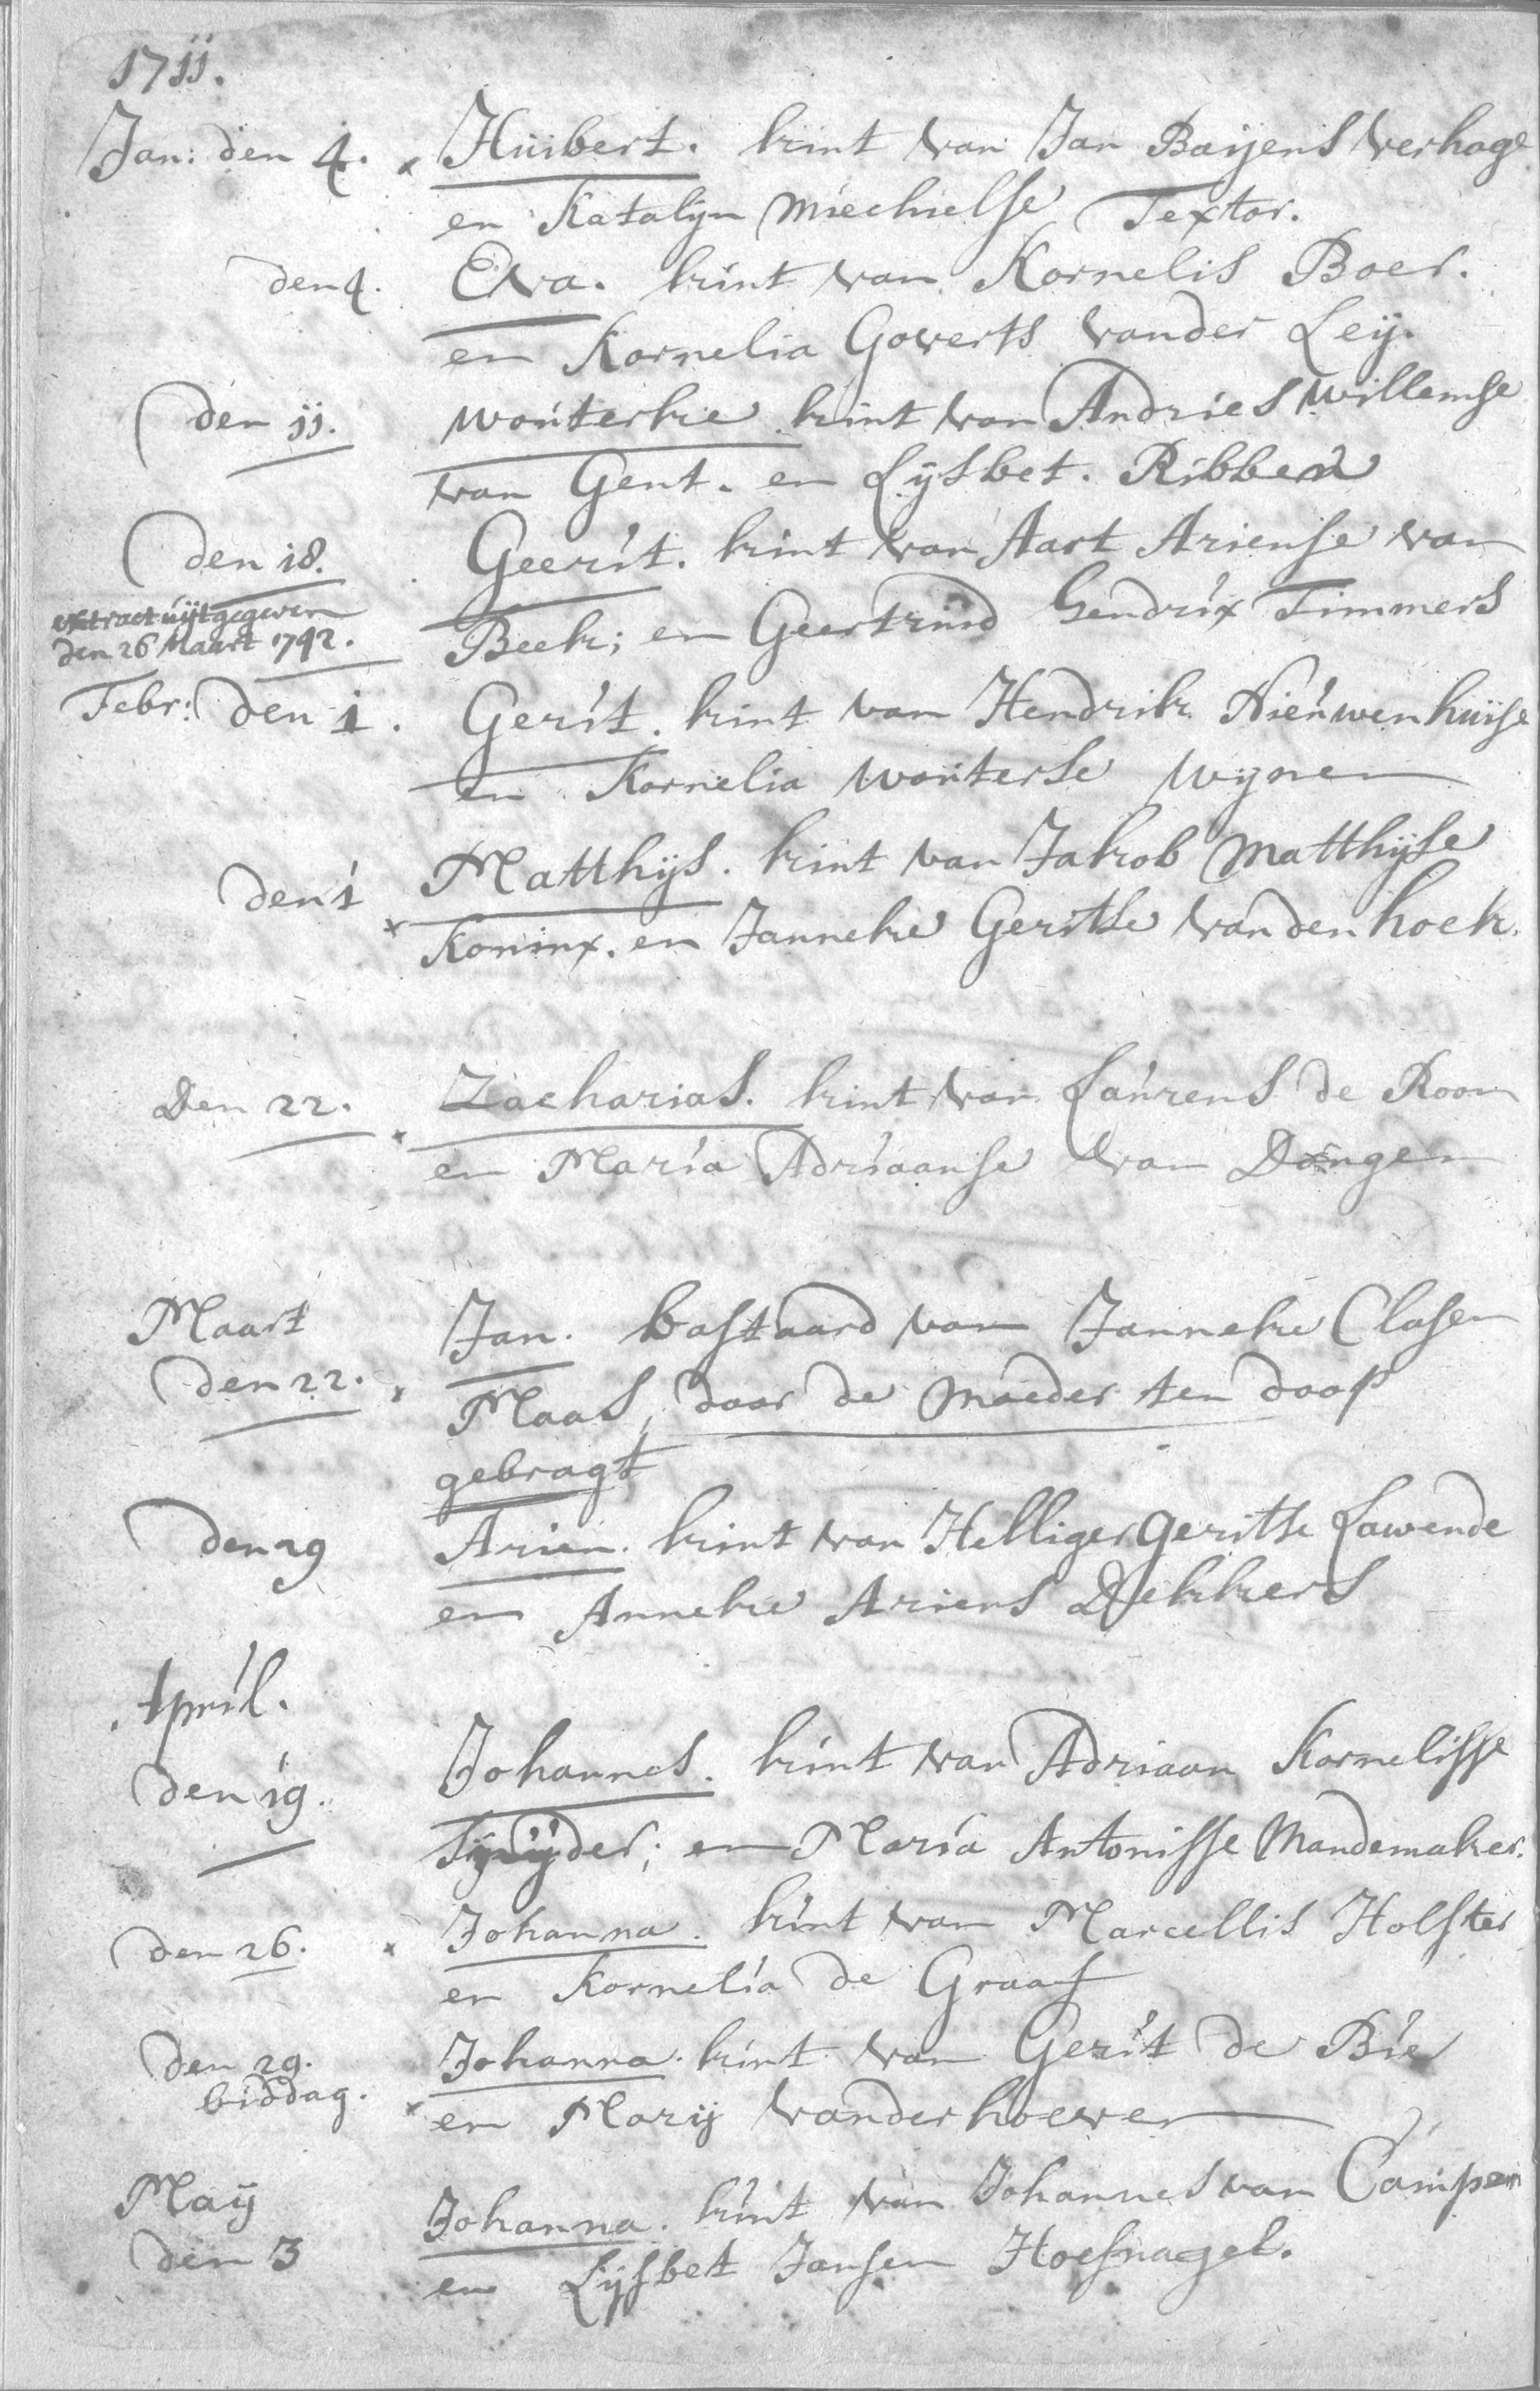 1711.
Jan: den 4. x Huibert. kint van Jan Baijens Verhage
en Katalijn Miechielse Textor.
den 4. Eva. kint van Kornelis Boer.
en Kornelia Goverts vander Leij.
den 11. Wouterke kint van Andries Willemse
van Gent. en Lijsbet. Ribben
den 18. Geerit. kint van Aart Ariense van
extract uijtgegeven
den 26 Maart 1792.
Beek; en Geertruid Hendrix Timmers
Febr: den 1. Gerit. kint van Hendrik Nieuwenhuijse
en Kornelia Wouterse Wijnen
den 1 Matthijs. kint van Jakob Matthijse
x Koninx. en Janneke Geritse vanden hoek.
Den 22. x Zacharias. kint van Laurens de Roon
en Maria Adriaanse van Dongen
Maart Jan. bastaard van Janneke Clasen
den 22. x Maas, door de Moeder ten doop
gebragt
den 29 Arien. kint van Helliger Geritse Lawende
en Anneke Ariens Dekkers
April.
den 19. Johannes. kint van Adriaan Kornelisse
en Maria Antonisse Mandemaker.
den 26. x Johanna. kint van Marcellis Holster
en Kornelia de Graaf
den 29. Johanna. kint van Gerit de Bie
biddag. x en Marij vanderhoeven
Maij Johanna. kint van Johannes van Campen
den 3 en Lijsbet Jansen Hoefnagel.